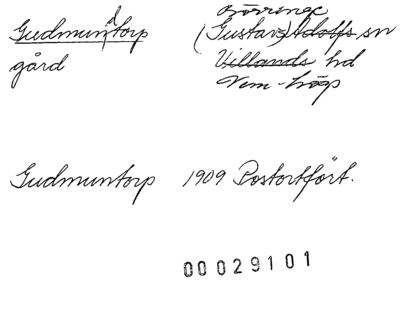 Gudmundtorp
gård
Börringe
(Gustav) Adolfs sn
Villands hd
Vem-hög
Gudmuntorp 1909 Postortfört.
00029101